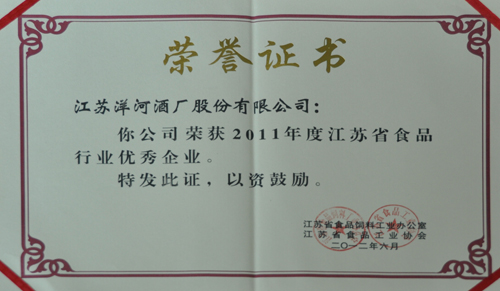 荣誉证书
江苏洋河酒厂股份有限公司：
你公司荣获2011年度江苏省食品
行业优秀企业。
特发此证，以资鼓励。
江苏省食品饲料工业办公室
江苏省食品工业协会
二〇一二年六月